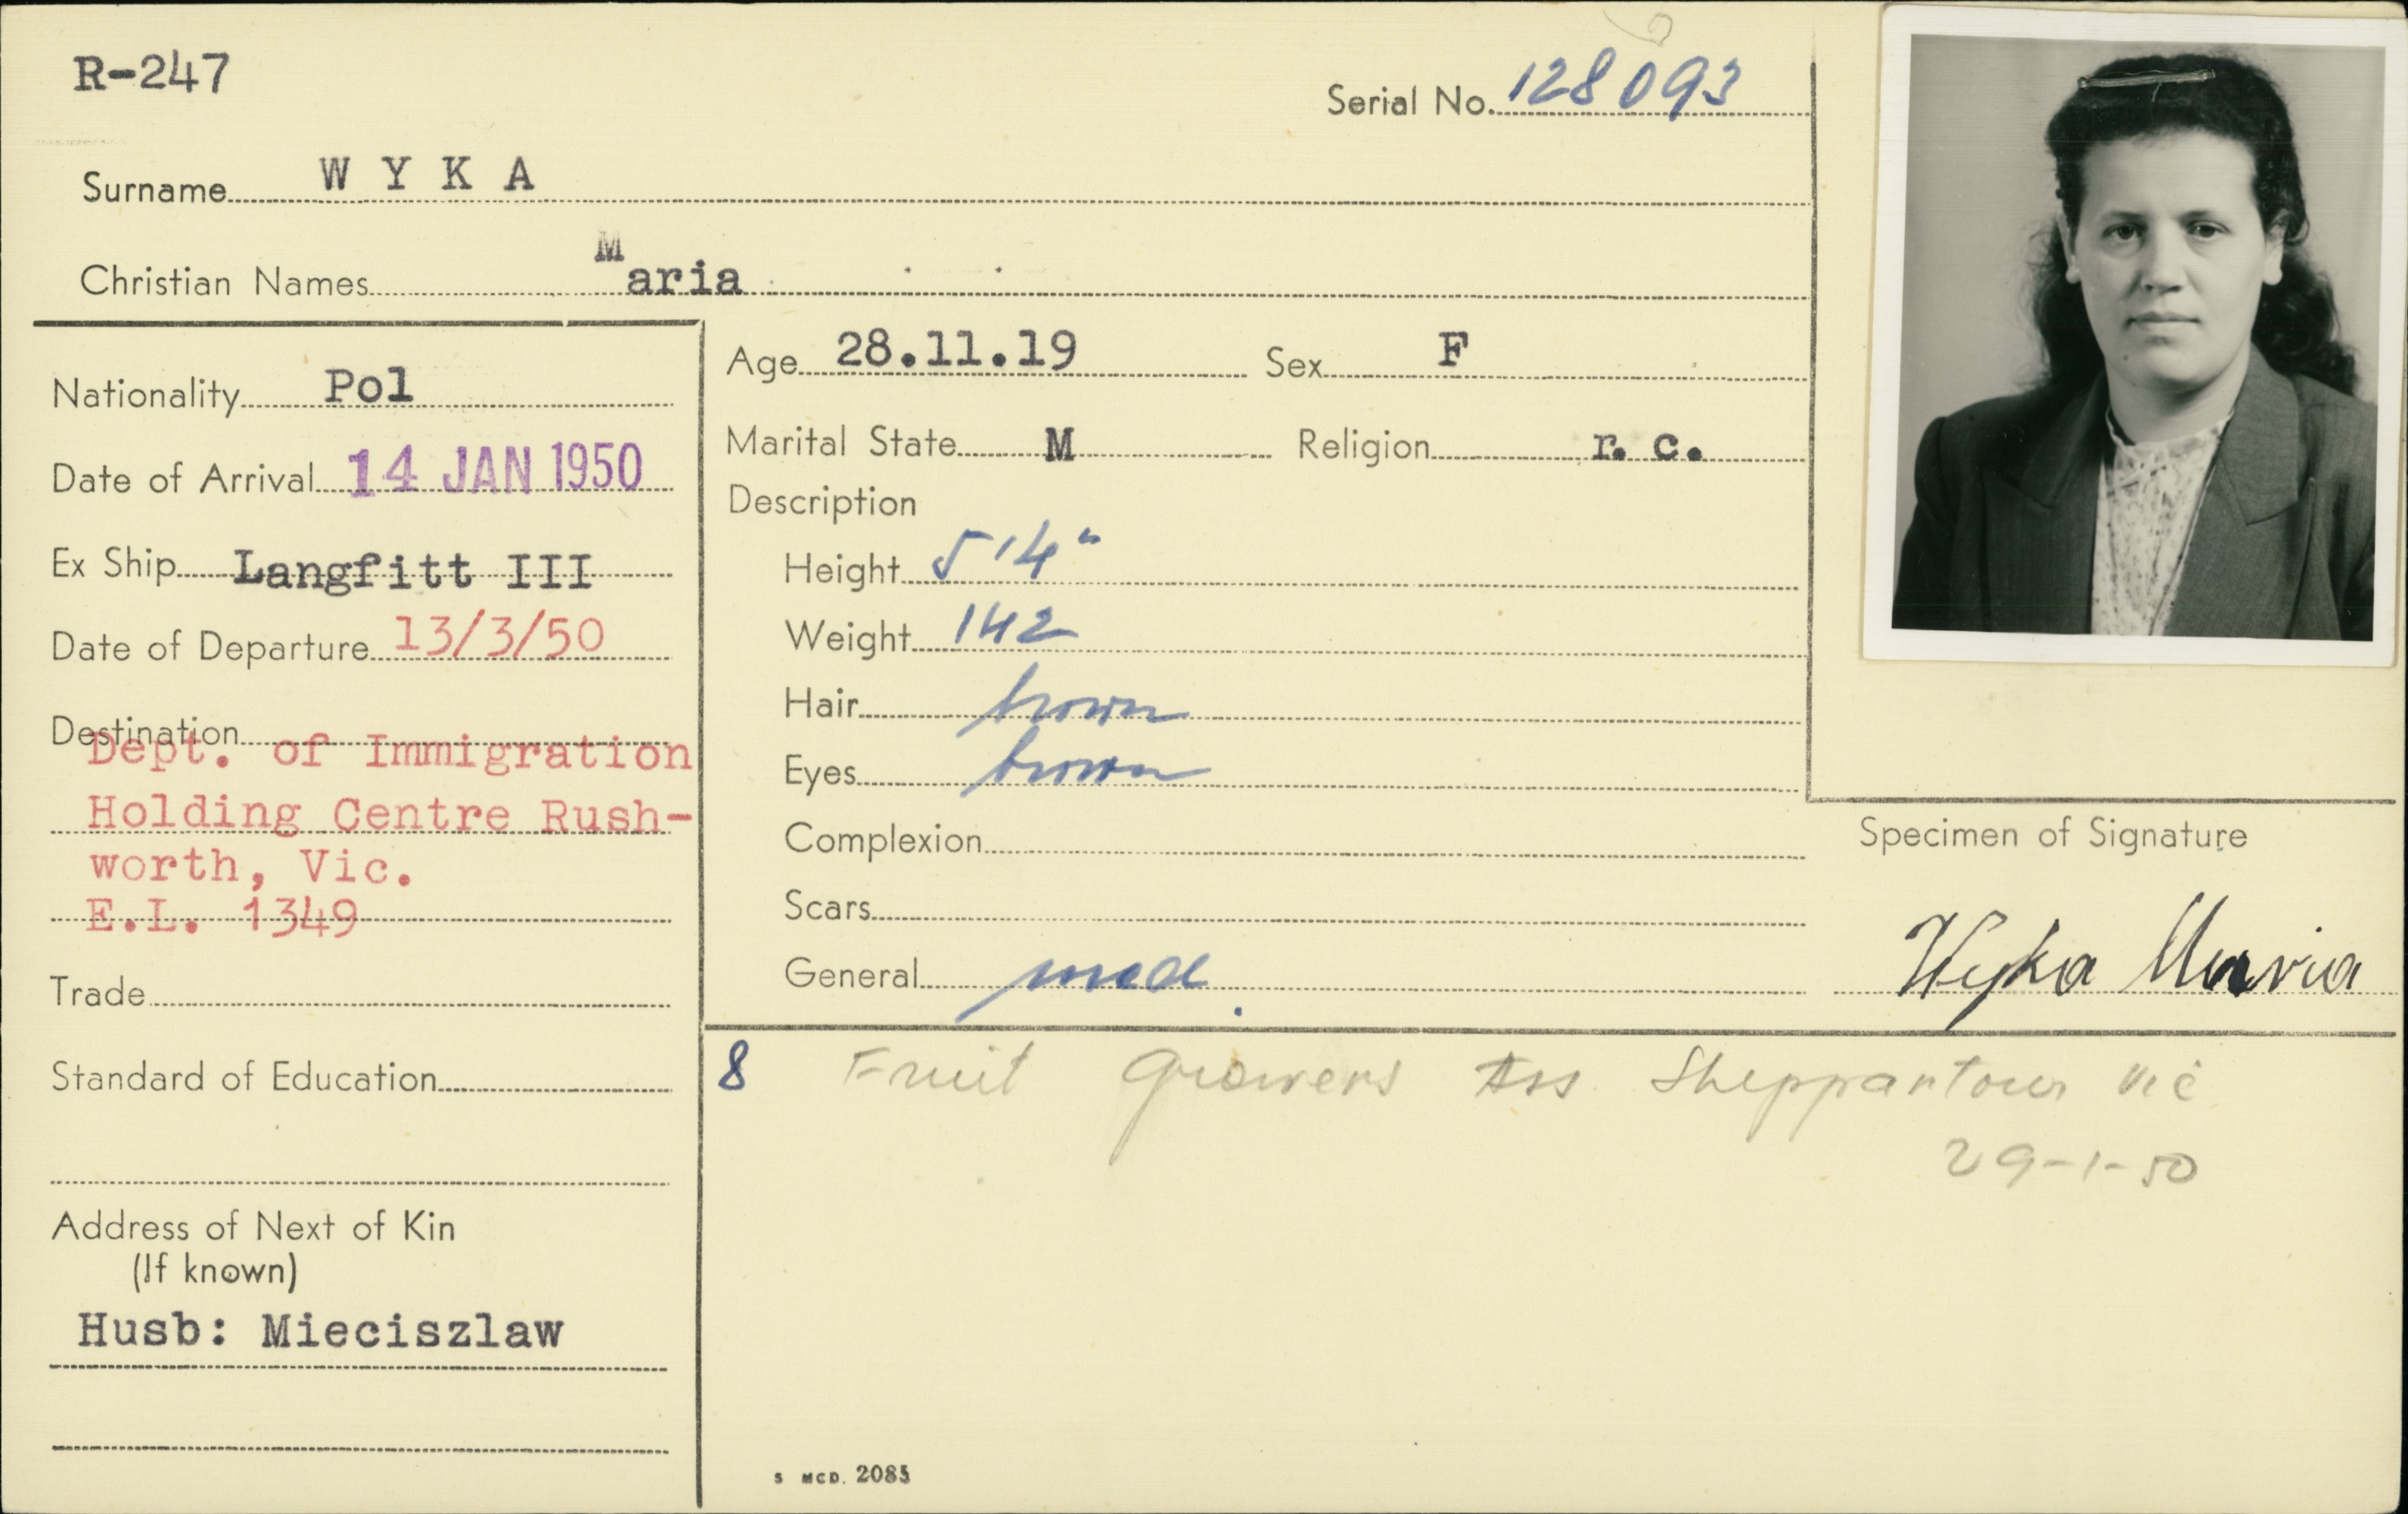 R-247
Serial No. 128093
Surname W Y K A
Christian Names Maria
Nationality Pol
Date of Arrival 14 JAN 1950
Ex Ship Langfitt III
Date of Departure 13/3/50
Destination
Dept. of Immigration
Holding Centre Rush-
worth, Vic.
E.L. 1349
Trade
Standard of Education
Address of Next of Kin
(If known)
Husb: Mieciszlaw
Age 28.11.19 Sex F
Marital State M Religion r. c.
Description
Height 5'4"
Weight 142
Hair brown
Eyes brown
Complexion
Scars
General med.
Specimen of Signature
Wyka Maria
8 Fruit Growers Ass Sheppartoun Vic
29-1-50
S MCD. 2085